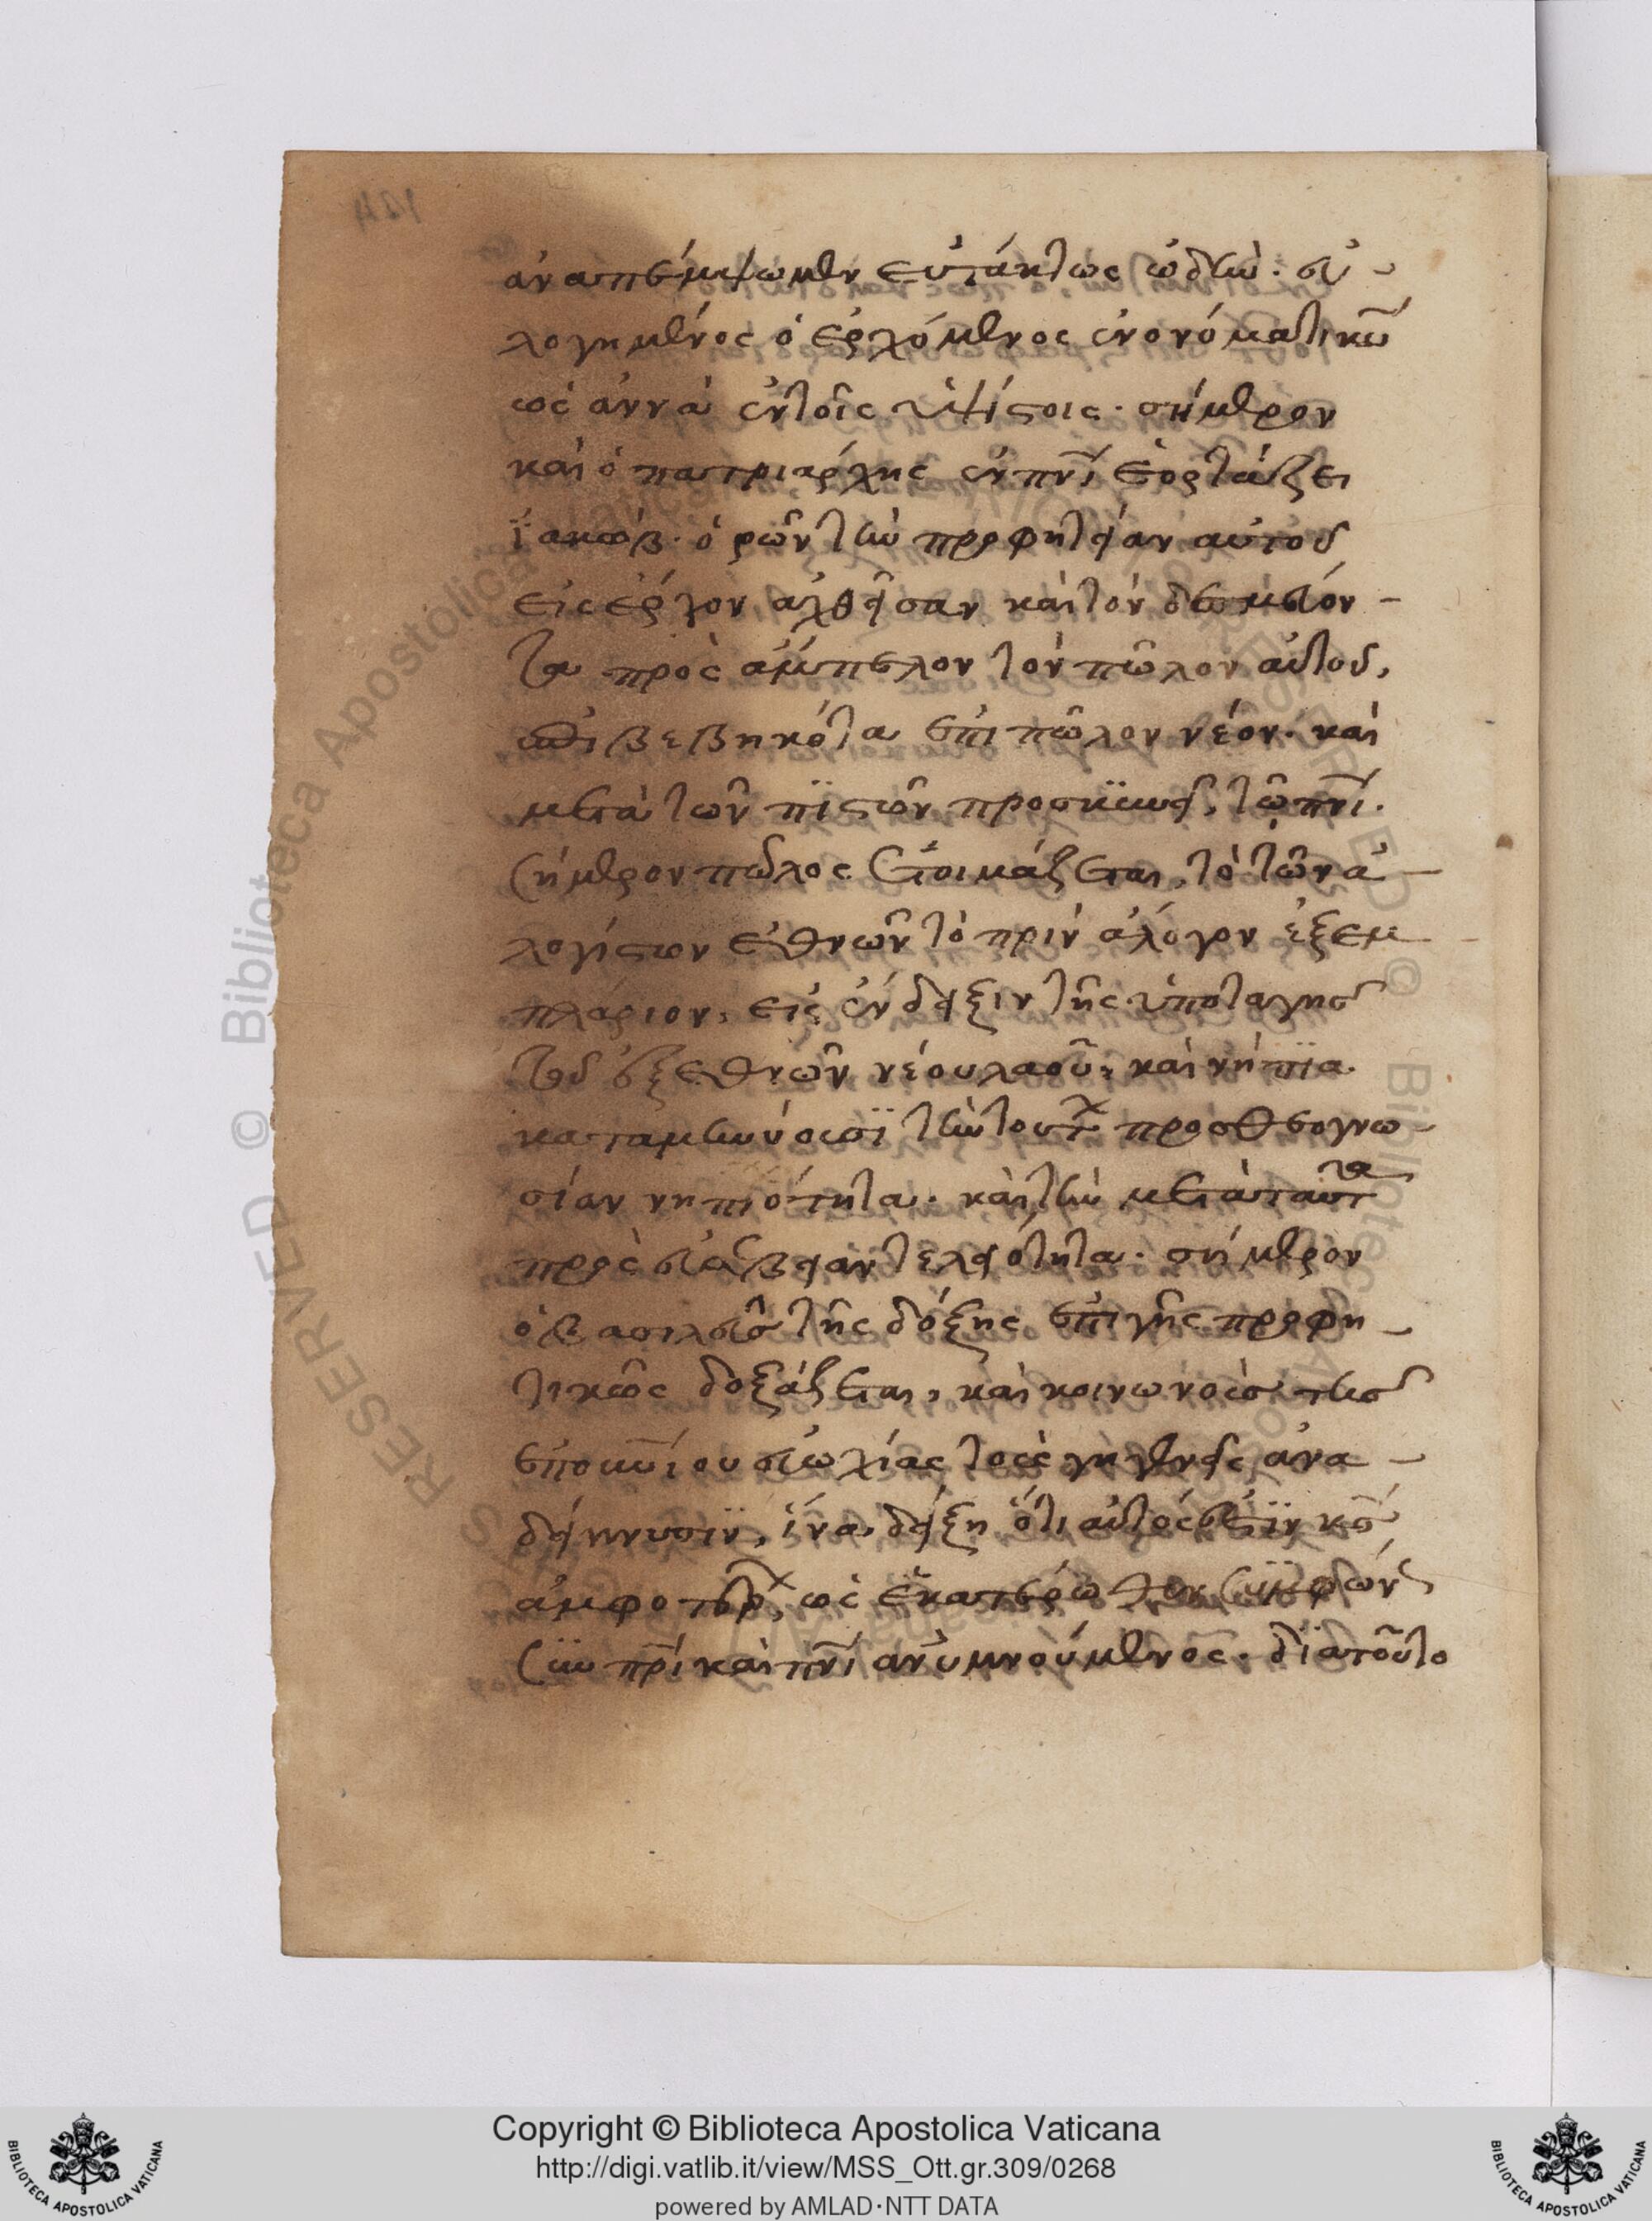 ἀναπέμψωμεν εὐτάκτως ὠδήν· εὐ-
λογημένος ὁ ἐρχόμενος ἐν ὀνόματι κ̅υ̅
ὡς ἀννὰ ἐν τοῖς ὑψίστοις· σήμερον
καὶ ὁ πατριάρχης ἐν π̅ν̅ι̅ ἑορτάζει
ϊακώβ· ὁρῶν τὴν προφητείαν αὐτοῦ
εἰς ἔργον ἀχθεῖσαν καὶ τὸν δεσμεύον-
τα πρὸς ἄμπελον τὸν πῶλον αὐτοῦ,
ἐπιβεβηκότα ἐπὶ πῶλον νέον· καὶ
μετὰ τῶν πϊστῶν προσκϋνεῖ, τῶ π̅ν̅ι̅.
Σήμερον πῶλος ἑτοιμάζεται, τὸ τῶν ἀ-
λογίστων ἐθνῶν τὸ πρὶν ἄλογον ἐξεμ-
πλάριον, εἰς ἔνδειξιν τῆς ὑποταγῆς
τοῦ ἐξ ἐθνῶν νέου λαοῦ· καὶ νήπϊα
καταμηνύουσϊ τὴν τούτ πρὸς θεογνω-
σίαν νηπιότητα· καὶ τὴν μετὰ ταῦτα
πρὸς εὐσέβειαν τελειότητα· σήμερον
ὁ βασιλεὺς τῆς δόξης ἐπὶ γῆς προφη-
τικῶς δοξάζεται, καὶ κοινωνοὺς τῆς
ἐπο̅υ̅ν̅ίου εὐωχίας τοὺς γηγενεῖς ἀνα-
δείκνυσϊν, ἵνα δείξη ὅτι αὐτός ἐστϊν κ̅ς̅
ἀμφοτέρ, ὡς ἑκατέρωθεν συμφών
Σϋν π̅ρ̅ι̅ καὶ π̅ν̅ι̅ ἀνυμνούμενος. δϊατοῦτο
Copyright © Biblioteca Apostolica Vaticana
http://digi.vatlib.it/view/MSS_Ott.gr.309/0268
powered by AMLAD·NTT DATA